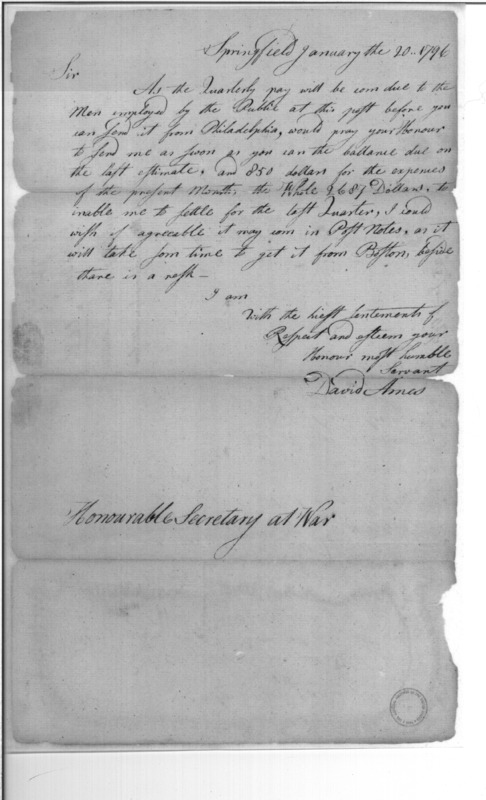 Springfield January the 20.. 1796
Sir
As the Quarterly pay will be com due to the
Men employed by the Publick at this post before you
can send it from Philadelphia, would pray your Honour
to send me as soon as you can the ballance due on
the last estimate, and 850 dollars for the expences
of the present Month, the Whole 2681 Dollars, to
inable me to settle for the last Quarter, I could
wish if agreeable it may com in Post Notes, as it
will take som time to get it from Boston, beside
thare is a resk —
I am
With the hiest sentements of
Respect and esteem your
Honour most humble
Servant
David Ames
Honourable Secretary at War